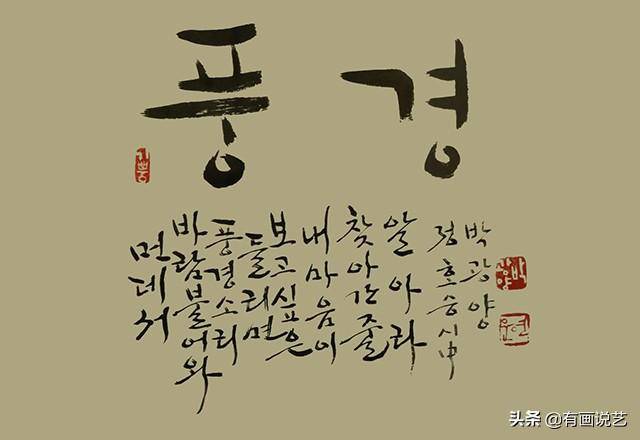 풍경
먼데서
바람불어와
풍경소리
들리면
보고싶은
내마음이
찾아간줄
알아라
정호승시中
박광양
头条 @有画说艺